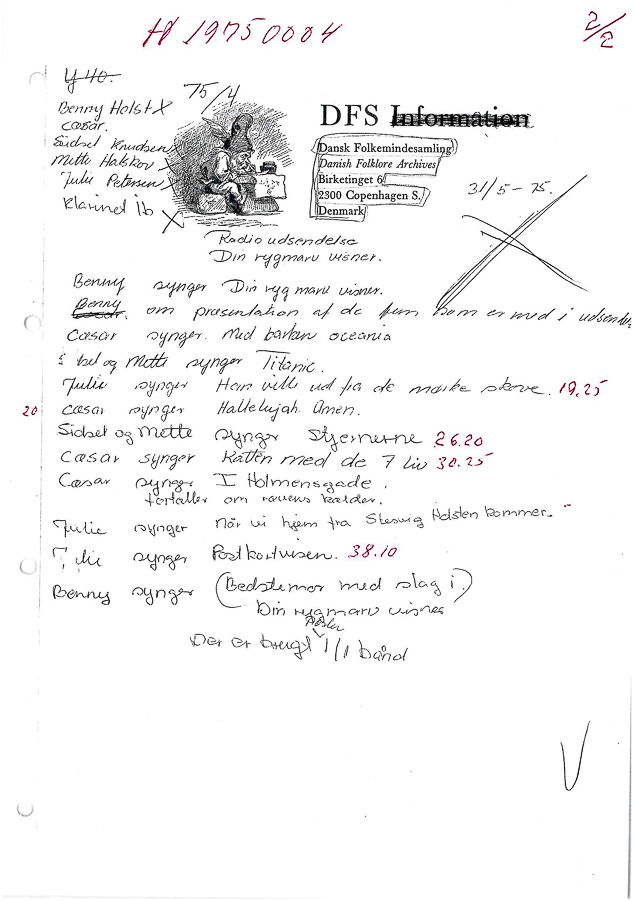 H 19750004
2/2
Y 40.
75/4
Benny Holst X
Cæsar.
Sidsel Knudsen X
Mette Halskov X
Julie Petersen X
Klarinet ib X
DFS Information
Dansk Folkemindesamling
Danish Folklore Archives
Birketinget 6
2300 Copenhagen S.
Denmark
31/5-75.
Radioudsendelse
Din rygmarv visner.
Benny synger Din rygmarv visner.
Benny om præsentation af de fem som er med i udsendel
Cæsar synger. med barken oceania
bel og Mette synger Titanic.
Julie synger Han ville ud fra de mørke skove. 19.25
20 Cæsar synger Hallelujah Amen.
Sidsel og Mette synger Stjernerne 26.20
Cæsar synger Katten med de 7 liv 30.25
Cæsar synger I Holmensgade.
fortæller om ravens kælder.
Julie synger Når vi hjem fra Slesvig Holsten kommer.
Julie synger Postkortvisen. 38.10
Benny synger (Bedstemor med slag i.)
Din rygmarv visner
Der er brugt 1/1 bånd